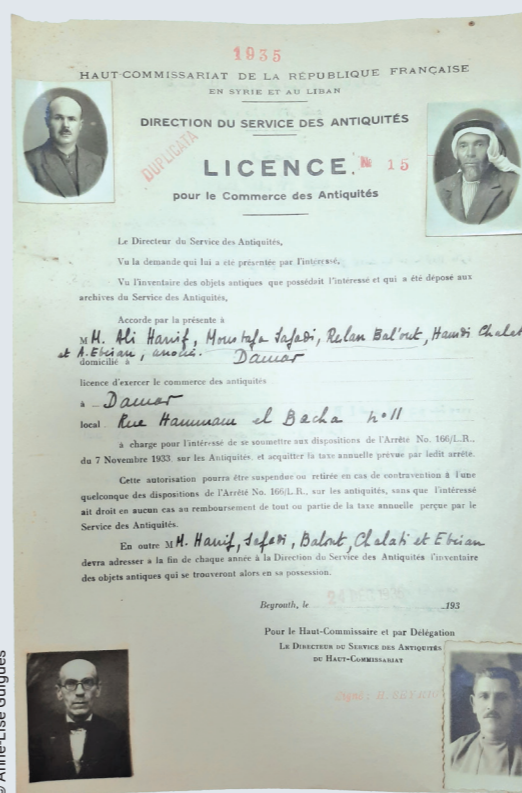 1935
HAUT-COMMISSARIAT DE LA RÉPUBLIQUE FRANÇAISE
EN SYRIE ET AU LIBAN
DIRECTION DU SERVICE DES ANTIQUITÉS
DUPLICATA
LICENCE. № 15
pour le Commerce des Antiquités
Le Directeur du Service des Antiquités,
Vu la demande qui lui a été présentée par l'intéressé,
Vu l'inventaire des objets antiques que possédait l'intéressé et qui a été déposé aux
archives du Service des Antiquités,
Accorde par la présente à
M M. Ali Hanif, Moustafa Safadi, Relan Bal'out, Hamdi Chalat
et A. Ebeian,
domicilié à Damas
licence d'exercer le commerce des antiquités
à Damas
local Rue Hammam el Bacha n° 11
à charge pour l'intéressé de se soumettre aux dispositions de l'Arrêté No. 166/L.R.,
du 7 Novembre 1933 sur les Antiquités, et acquitter la taxe annuelle prévue par ledit arrêté.
Cette autorisation pourra être suspendue ou retirée en cas de contravention à l'une
quelconque des dispositions de l'Arrêté No. 166/L.R., sur les antiquités, sans que l'intéressé
ait droit en aucun cas au remboursement de tout ou partie de la taxe annuelle perçue par le
Service des Antiquités.
En outre M M. Hanif, Safadi, Balout, Chalati et Ebeian
devra adresser à la fin de chaque année à la Direction du Service des Antiquités l'inventaire
des objets antiques qui se trouveront alors en sa possession.
Beyrouth, le 193
Pour le Haut-Commissaire et par Délégation
LE DIRECTEUR DU SERVICE DES ANTIQUITÉS
DU HAUT-COMMISSARIAT
Signé: H. SEYRIG
© Anne-Lise Guigues